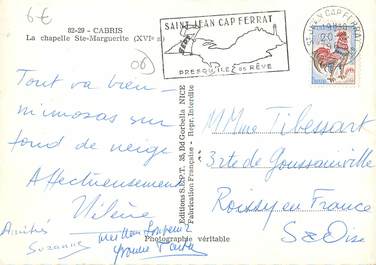 6€
82-29 - CABRIS
La chapelle Ste-Marguerite (XVIe s)
06
SAINT JEAN CAP FERRAT
PRESQU'ILE DE RÊVE
ST JEAN CAP FERRAT
Tout va bien -
mimosas sur
fond de neige
Affectueusement
Hélène
Amitiés
Suzanne
Yvonne
Photographie véritable
Editions S.E.P.T. 35, Bd Gorbella NICE
Fabrication Française - Repr. Interdite
MMme Tibessart
32 rte de Goussainville
Roissy en France
S&Oise